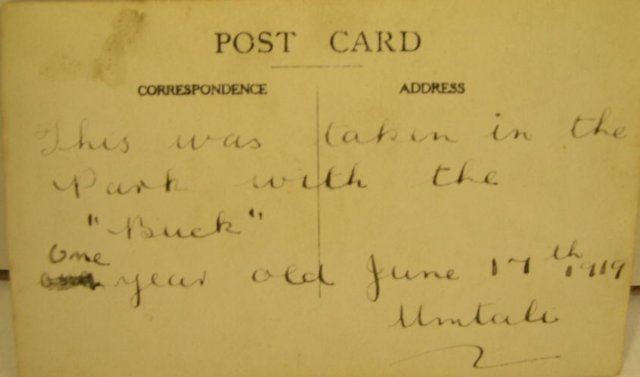 POST CARD
CORRESPONDENCE
ADDRESS
This was taken in the
Park with the
"Buck"
One
year old June 17th 1919
Umtali